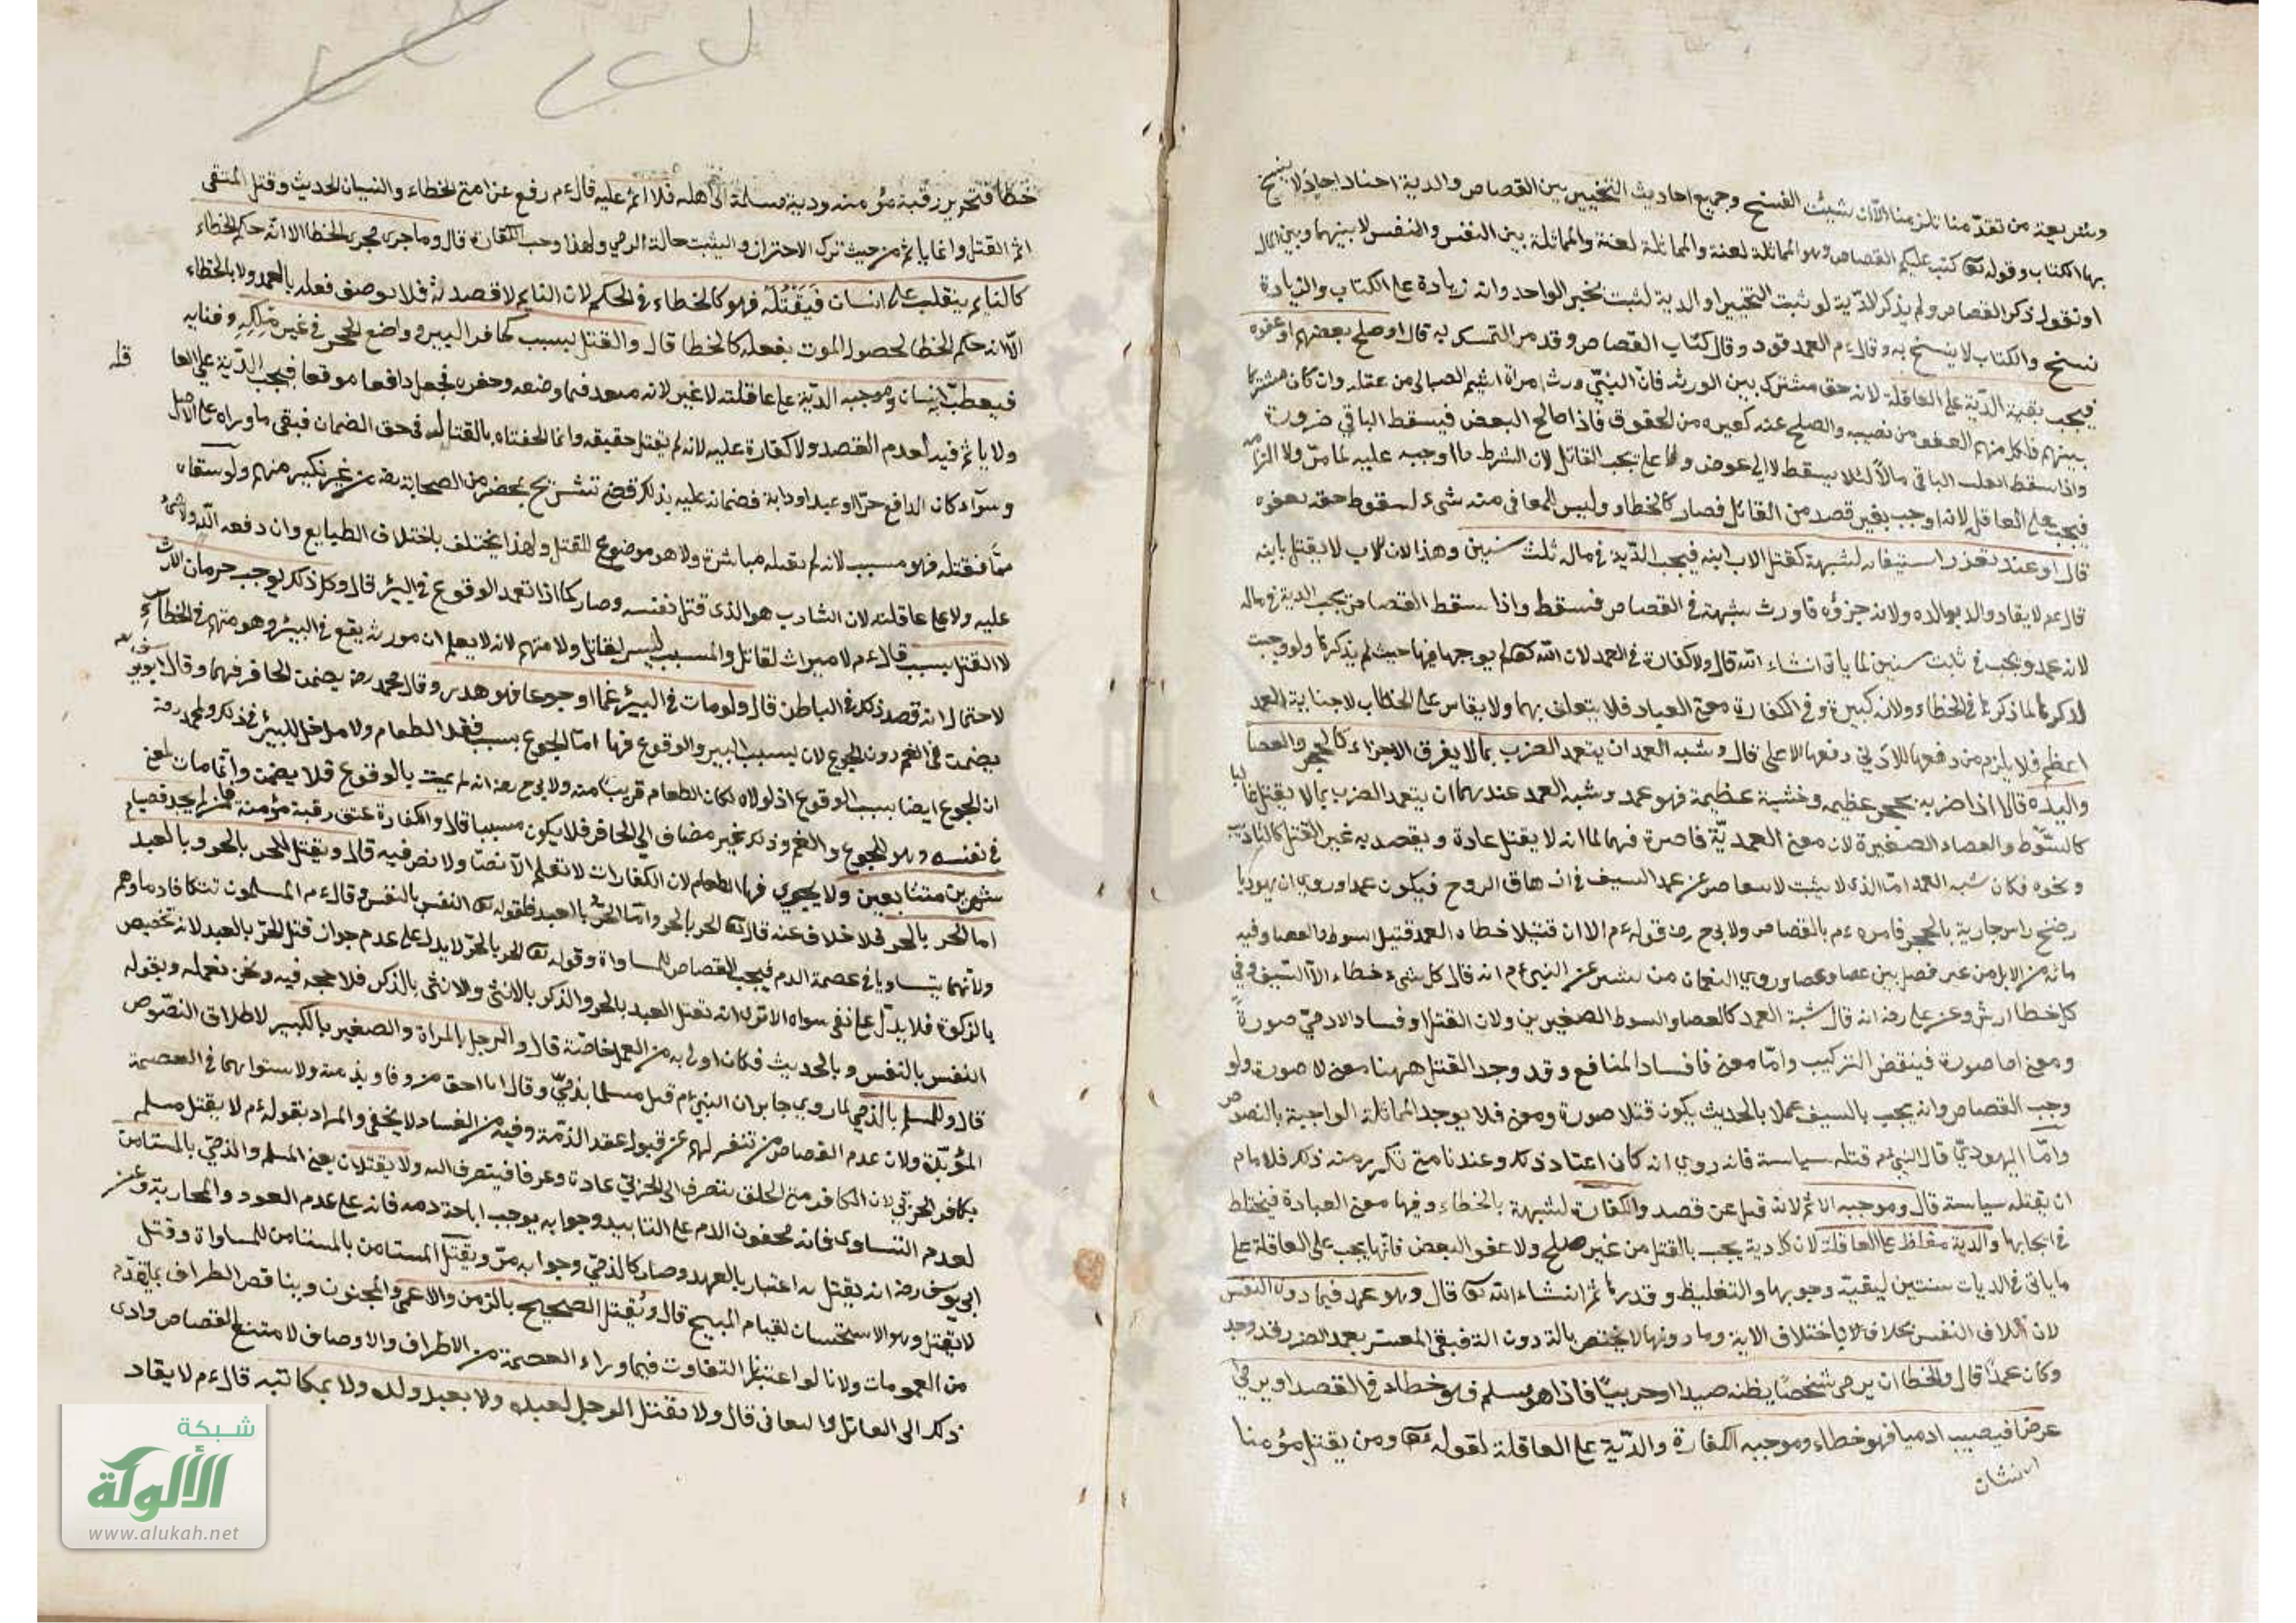 وشريعة من تقدّمنا تلزمنا الّا ان يثبت الفسخ وجميع احاديث التخيير بين القصاص والدية احاد لا ينسخ
بها الكتاب وقوله تعا كتب عليكم القصاص وهو المماثلة لغة والمماثلة بين النفس والنفس لا بينهما وبين المال
او نقول ذكر القصاص ولم يذكر الدّية لو ثبت التخيير او الدية لثبت بخبر الواحد وانه زيادة على الكتاب والزيادة
نسخ والكتاب لا ينسخ به وقال ءم العمد قود وقال كتاب القصاص وقد مر التمسك به قال او صلح بعضهم او عفوه
فيجب بقية الدّية على العاقلة لانه حق مشترك بين الورثة فانّ النبيّ ورث امراة اشيم الضبابي من عقله وان كان مشتركا
بينهم فلكل منهم العفو من نصيبه والصلح عنه كغيره من الحقوق فاذا صالح البعض فيسقط الباقي ضرورة
واذا سقط انقلب الباقي مالاً لئلا يسقط لا الى عوض ولا يجب القاتل لان الشرط ما اوجبه عليه لما مرّ ولا التزامه
فيجب على العاقلة لانه اوجب بغير قصد من القاتل فصار كالخطاء وليس للعافي منه شيء لسقوط حقه بعفوه
قال او عند تعذر استيفائه لشبهة كقتل الاب ابنه فيجب الدّية في ماله ثلث سنين وهذا لان الاب لا يقتل بابنه
قال عم لا يقاد والد بوالده ولانه جزؤه فاورث شبهة في القصاص فسقط واذا سقط القصاص يجب الدية في ماله
لانه عمد ويجب في ثلث سنين لما ياتي انشاء الله قال ولا كفارة في العمد لان الله تعا لم يوجبها فيها حيث لم يذكرها ولو وجبت
لذكرها كما ذكرها في الخطاء ولانه كبيرة وفي الكفارة معنى العباد فلا يتعلق بها ولا يقاس على الخطاب لا جناية العمد
اعظم فلا يلزم من دفعها للادنى دفعها الاعلى قال وشبه العمد ان يتعمد الضرب بما لا يفرق الاجزاء كالحجر والعصا
واليد وقالا اذا ضربه بحجر عظيم وخشبة عظيمة فهو عمد وشبه العمد عندهما ان يتعمد الضرب بما لا يقتل غالبا
كالسّوط والعصاء الصغيرة لان معنى العمديّة قاصرة فيهما لما انه لا يقتل عادة ويقصد به غير القتل كالتاديب
ونحوه فكان شبه العمد امّا الذي لا يثبت لا يتقاصر عن عمد السيف في ازهاق الروح فيكون عمدا وروي ان يهوديا
رضخ راس جارية بالحجر فامر ءم بالقصاص ولابي ح رضه قوله ءم الا ان قتيل خطاء العمد قتيل السوط والعصا وفيه
مائة من الابل من غير فصل بين عصا وعصا وروي النعمان من بشير عن النبي ءم انه قال كل شيء خطاء الّا السّيف وفي
كل خطا ارش وعن علي رضه انه قال شبة العمد كالعصا والسوط الصغيرين ولان القتل افساد الادميّ صورةً
ومعنى اما صورة فينقض التركيب وامّا معنى فافساد المنافع وقد وجد القتل ههنا معنى لا صورة ولو
وجب القصاص وانه يجب بالسيف عملا بالحديث يكون قتلا صورة ومعنى فلا يوجد المماثلة الواجبة بالنصوص
وامّا اليهوديّ قال النبي عم قتله سياسة فانه روي انه كان اعتاد ذلك وعندنا متى تكرر منه ذلك فللامام
ان يقتله سياسة قال وموجبه الاثم لانه قتل عن قصد والكفارة لشبهه بالخطاء وفيها معنى العبادة فيحتاط
في ايجابها والدية مغلظ على العاقلة لان كل دية يجب بالقتل من غير صلح ولا عفو البعض فانّها يجب على العاقلة على
ما ياتي في الديات سنتين ليقيته وجوبها والتغليظ وقدرها ثم انشاء الله تعا قال وهو عمد فيما دون النفس
لان اتلاف النفس يختلف باختلاف الالة وما دونها لا يختص بالة دون الة فبقي المعتبر بعمد الضرر وقد وجد
وكان عمدًا قال والخطا ان يرمي شخصًا يظنه صيدا او حربيًا فاذا هو مسلم فهو خطاء في القصد او يرمي
عرضا فيصيب ادميا فهو خطاء وموجبه الكفارة والدّية على العاقلة لقوله تعا ومن يقتل مؤمنا
خطأ فتحرير رقبة مؤمنة ودية مسلمة الى اهله فلا اثم عليه قال ءم رفع عن امتي الخطاء والنسيان الحديث وقتل المتقى
اثم القتل وانما ياثم من حيث ترك الاحتراز والتثبت حالة الرمي ولهذا وجب الكفارة قال وما جرى مجرى الخطا الا انّه حكم الخطاء
كالنايم ينقلب على انسان فَيَقْتُلُه فهو كالخطاء في الحكم لان النايم لا قصد له فلا يوصف فعله بالعمد ولا بالخطاء
الّا انه حكم الخطا لحصول الموت بفعله كالخطا قال والقتل بسبب كحافر البير وواضع الحجر في غير ملكه وفنايه
فيعطب انسان وموجبه الدّية على عاقلته لا غير لانه متعد فيما وضعه وحفره فجعل دافعا موقعا فيجب الدّية على العا
قله
ولا ياثم فيه لعدم القصد ولا كفارة عليه لانه لم يقتل حقيقه وانما الحقناه بالقتاله في حق الضمان فبقى ما وراه على الاصل
وسوآء كان الدافع حرّا او عبدا ودابة فضمانه عليه بذلك قضى شريح بمحضر من الصحابة رضه من غير نكير منهم ولو سقاه
سمًّا فقتله فهو مسبب لانه لم يقتله مباشرة ولا هو موضوع للقتل ولهذا يختلف باختلاف الطبايع وان دفعه اليه ولا شيء
عليه ولا على عاقلته لان الشارب هو الذى قتل نفسه وصار كما اذا تعمد الوقوع في البئر قال وكل ذلك يوجب حرمان الارث
لا القتل بسبب قال ءم لا ميراث لقاتل والمسبب ليس لقاتل ولا متهم لانه لا يعلم ان مورثه يقع في البئر وهو متهم في الخطآءِ
لاحتمال انه قصد ذلك في الباطن قال ولو مات في البيئر غما او جوعا فهو هدر وقال محمد رضه يضمن الحافر فيهما وقال ابويوسف رضه
يضمن في الغم دون الجوع لان بسبب البير والوقوع فيها امّا الجوع بسبب فقد الطعام ولا مدخل للبئر في ذلك ولمحمد رضه
ان الجوع ايضا بسبب الوقوع اذ لولاه لكان الطعام قريبًا منه ولابي ح رضه انه لم يمت بالوقوع فلا يضمن وانّما مات لمعنى
في نفسه وهو الجوع والغم وذلك غير مضاف الى الحافر فلا يكون مسببا قال والكفارة عتق رقبة مؤمنة فمن لم يجد فصيام
شهرين متتابعين ولا يجزي فيها الطعام لان الكفارات لا تعلم الّا نصّا ولا نص فيه قال ويقتل الحر بالحر وبالعبد
اما الحر بالحر فلا خلاف عنه قال تعا الحر بالحر وامّا الحرُّ بالعبد فلقوله تعا النفس بالنفس وقال ءم المسلمون تتكافا دماوهم
ولانّهما يتساويا في عصمة الدم فيجب القصاص للمساواة وقوله تعا الحر بالحرّ لا يدل على عدم جواز قتل الحرّ بالعبد لانه تخصيص
بالذكر فلا يدلّ على نفى سواه الا ترى انه تقتل العبد بالحر والذكر بالانثى والانثى بالذكر فلا حجة فيه ونحن نعمله وبقوله
النفس بالنفس وبالحديث فكان اولى به من العمل خاصّة قال والرجل بالمراة والصغير بالكبير لاطلاق النصّوص
قال والمسلم بالذمي لما روي جابر ان النبي ءم قتل مسلما بذميّ وقال انا احق من وفا وبذمته ولاستوايهما في العصمة
المؤبّدة ولان عدم القصاص من تنفير لهم عن قبول عقد الذمّة وفيه من الفساد لا يخفى والمراد بقوله ءم لا يقتل مسلم
بكافر الحربي لان الكافر متى اطلق ينصرف الى الحربيّ عادة وعرفا فينصرف اليه ولا يقتلان يعنى المسلم والذمّي بالمستامن
لعدم التساوى فانه محقون الدم على التابيد وجوابه يوجب اباحة دمه فانه على عدم العود والمحاربة وعن
ابي يوسف رضه انه يقتل به اعتبار بالعهد وصار كالذميّ وجوابه مرّ ويقتل المستامن بالمستامن للمساواة وقتل
لا يقتل وهو الاستحسان لقيام المبيح قال ويُقتل الصحيح بالزمن والاعمى والمجنون وبناقص الطراف بما تقدّم
من العمومات ولانا لو اعتبرنا التفاوت فيما وراء العصمة من الاطراف والاوصاف لامتنع القصاص وادى
ذلك الى التقاتل والتفانى قال ولا يقتل الرجل لعبده ولا بعبد ولده ولا بمكاتبه قال ءم لا يقاد
شبكة
الألوكة
www.alukah.net